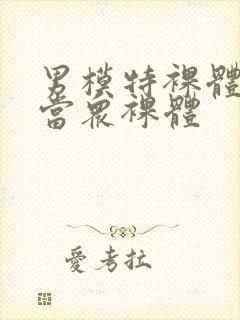 男模特裸體
當眾裸體
愛考拉